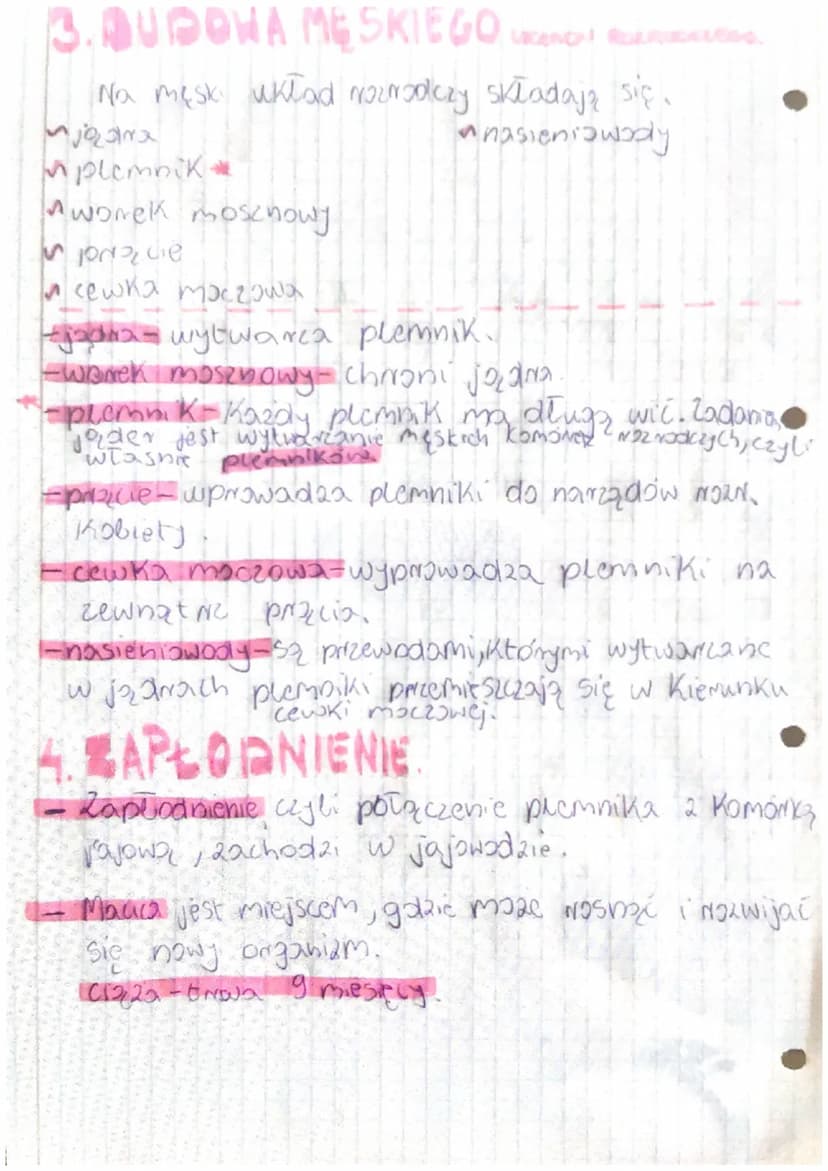 3. BUDOWA MĘSKIEGO UKŁADU ROZRODCZEGO.
Na męski układ rozrodczy składają się.
jądra
nasieniowody
plemnik *
worek mosznowy
prącie
cewka moczowa
- jądra - wytwarza plemnik.
- worek mosznowy - chroni jądra.
* - plemnik - Każdy plemnik ma długą wić. Zadaniem
jąder jest wytwarzanie męskich komórek rozrodczych, czyli
właśnie plemników.
- prącie - wprowadza plemniki do narządów rozr.
kobiety.
- cewka moczowa - wyprowadza plemniki na
zewnątrz prącia.
- nasieniowody - są przewodami, którymi wytwarzane
w jądrach plemniki przemieszczają się w kierunku
cewki moczowej.
4. ZAPŁODNIENIE.
- Zapłodnienie, czyli połączenie plemnika z komórką
jajową, zachodzi w jajowodzie.
- Macica jest miejscem, gdzie może rosnąć i rozwijać
się nowy organizm.
Ciąża - trwa 9 miesięcy.